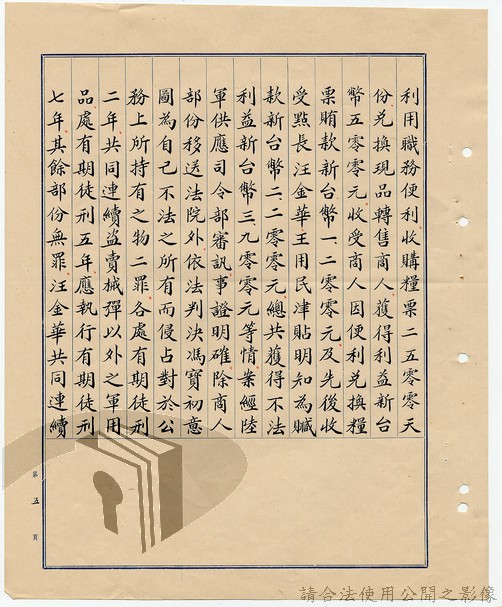 利用職務便利收購糧票二五零零天
份兌換現品轉售商人獲得利益新台
幣五零零元收受商人因便利兌換糧
票賄款新台幣一、二零零元及先後收
受點長汪金華王用民津貼明知為贓
款新台幣二、二零零元總共獲得不法
利益新台幣三、九零零元等情案經陸
軍供應司令部審訊事證明確除商人
部份移送法院外依法判決馮寶初意
圖為自己不法之所有而侵占對於公
務上所持有之物二罪各處有期徒刑
二年共同連續盜賣械彈以外之軍用
品處有期徒刑五年應執行有期徒刑
七年其餘部份無罪汪金華共同連續
第五頁
請合法使用公開之影像